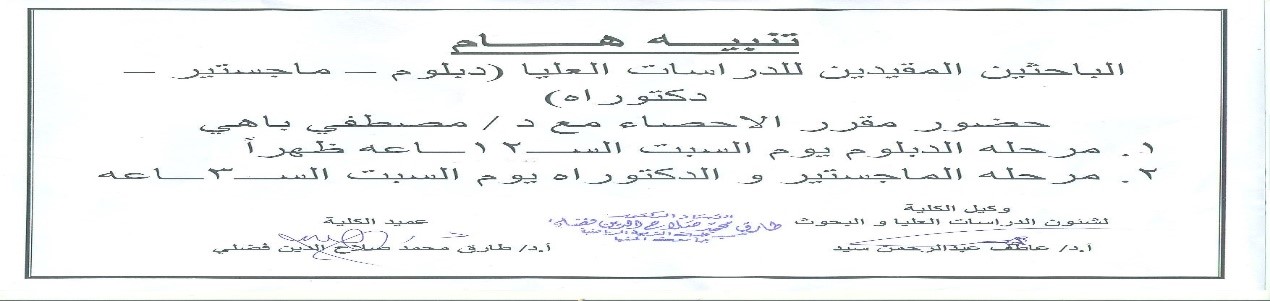 تنبيه هام
الباحثين المقيدين للدراسات العليا (دبلوم – ماجستير –
دكتوراه)
حضور مقرر الاحصاء مع د / مصطفي باهي
١. مرحله الدبلوم يوم السبت الســ١٢ــاعه ظهرآ
٢. مرحله الماجستير و الدكتوراه يوم السبت الســ٣ــاعه
وكيل الكلية
لشئون الدراسات العليا و البحوث
أ.د/ عاطف عبدالرحمن سيد
طارق محمد صلاح الدين فضلي
عميد الكلية
أ.د/ طارق محمد صلاح الدين فضلي